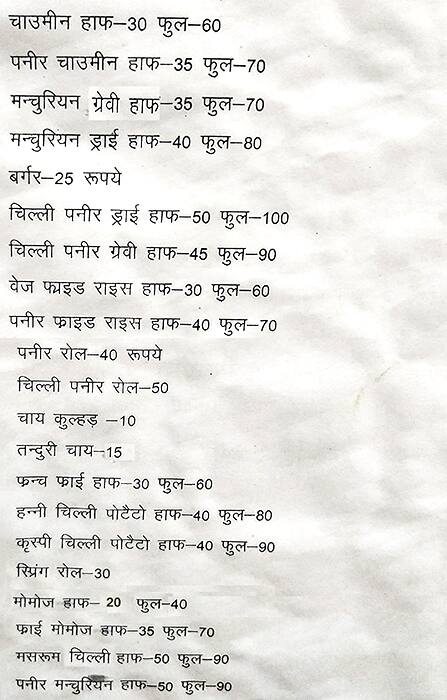 चाउमीन हाफ–30 फुल–60
पनीर चाउमीन हाफ–35 फुल–70
मन्चुरियन ग्रेवी हाफ–35 फुल–70
मन्चुरियन ड्राई हाफ–40 फुल–80
बर्गर–25 रूपये
चिल्ली पनीर ड्राई हाफ–50 फुल–100
चिल्ली पनीर ग्रेवी हाफ–45 फुल–90
वेज फ्राइड राइस हाफ–30 फुल–60
पनीर फ्राइड राइस हाफ–40 फुल–70
पनीर रोल–40 रूपये
चिल्ली पनीर रोल–50
चाय कुल्हड़ –10
तन्दुरी चाय–15
फ्रन्च फ्राई हाफ–30 फुल–60
हन्नी चिल्ली पोटैटो हाफ–40 फुल–80
कृस्पी चिल्ली पोटैटो हाफ–40 फुल–90
स्प्रिंग रोल–30
मोमोज हाफ– 20 फुल–40
फ्राई मोमोज हाफ–35 फुल–70
मसरूम चिल्ली हाफ–50 फुल–90
पनीर मन्चुरियन हाफ–50 फुल–90